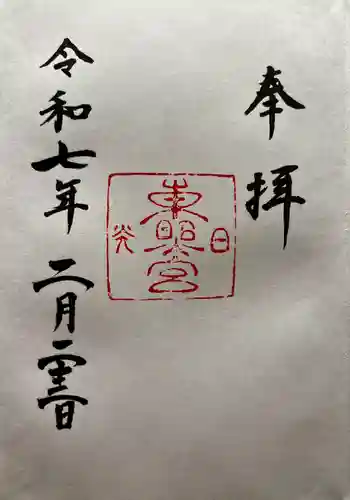 奉拝
日光
東照宮
令和七年二月二十三日